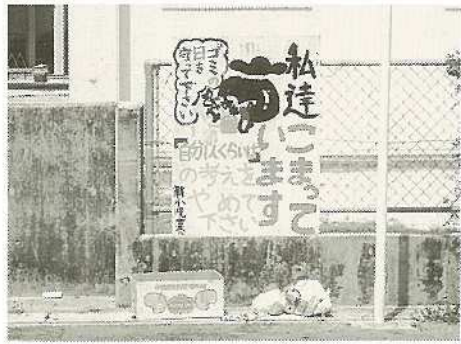 私達こまって
います
ゴミの
日を
守って下さい
くらいは
の考えを
やめて
下さい